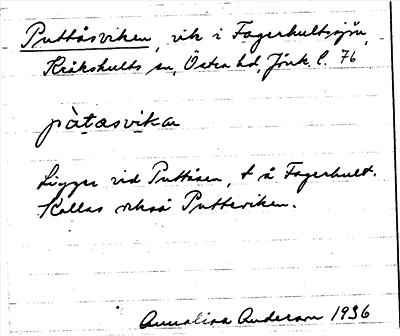 Puttåsviken, vik i Fagerhultsjön,
Krikshults sn, Östra hd, Jönk. l. 76
pàtasvika
Ligger vid Puttåsen, t å Fagerhult.
Kallas också Putteviken.
Annalisa Anderson 1936